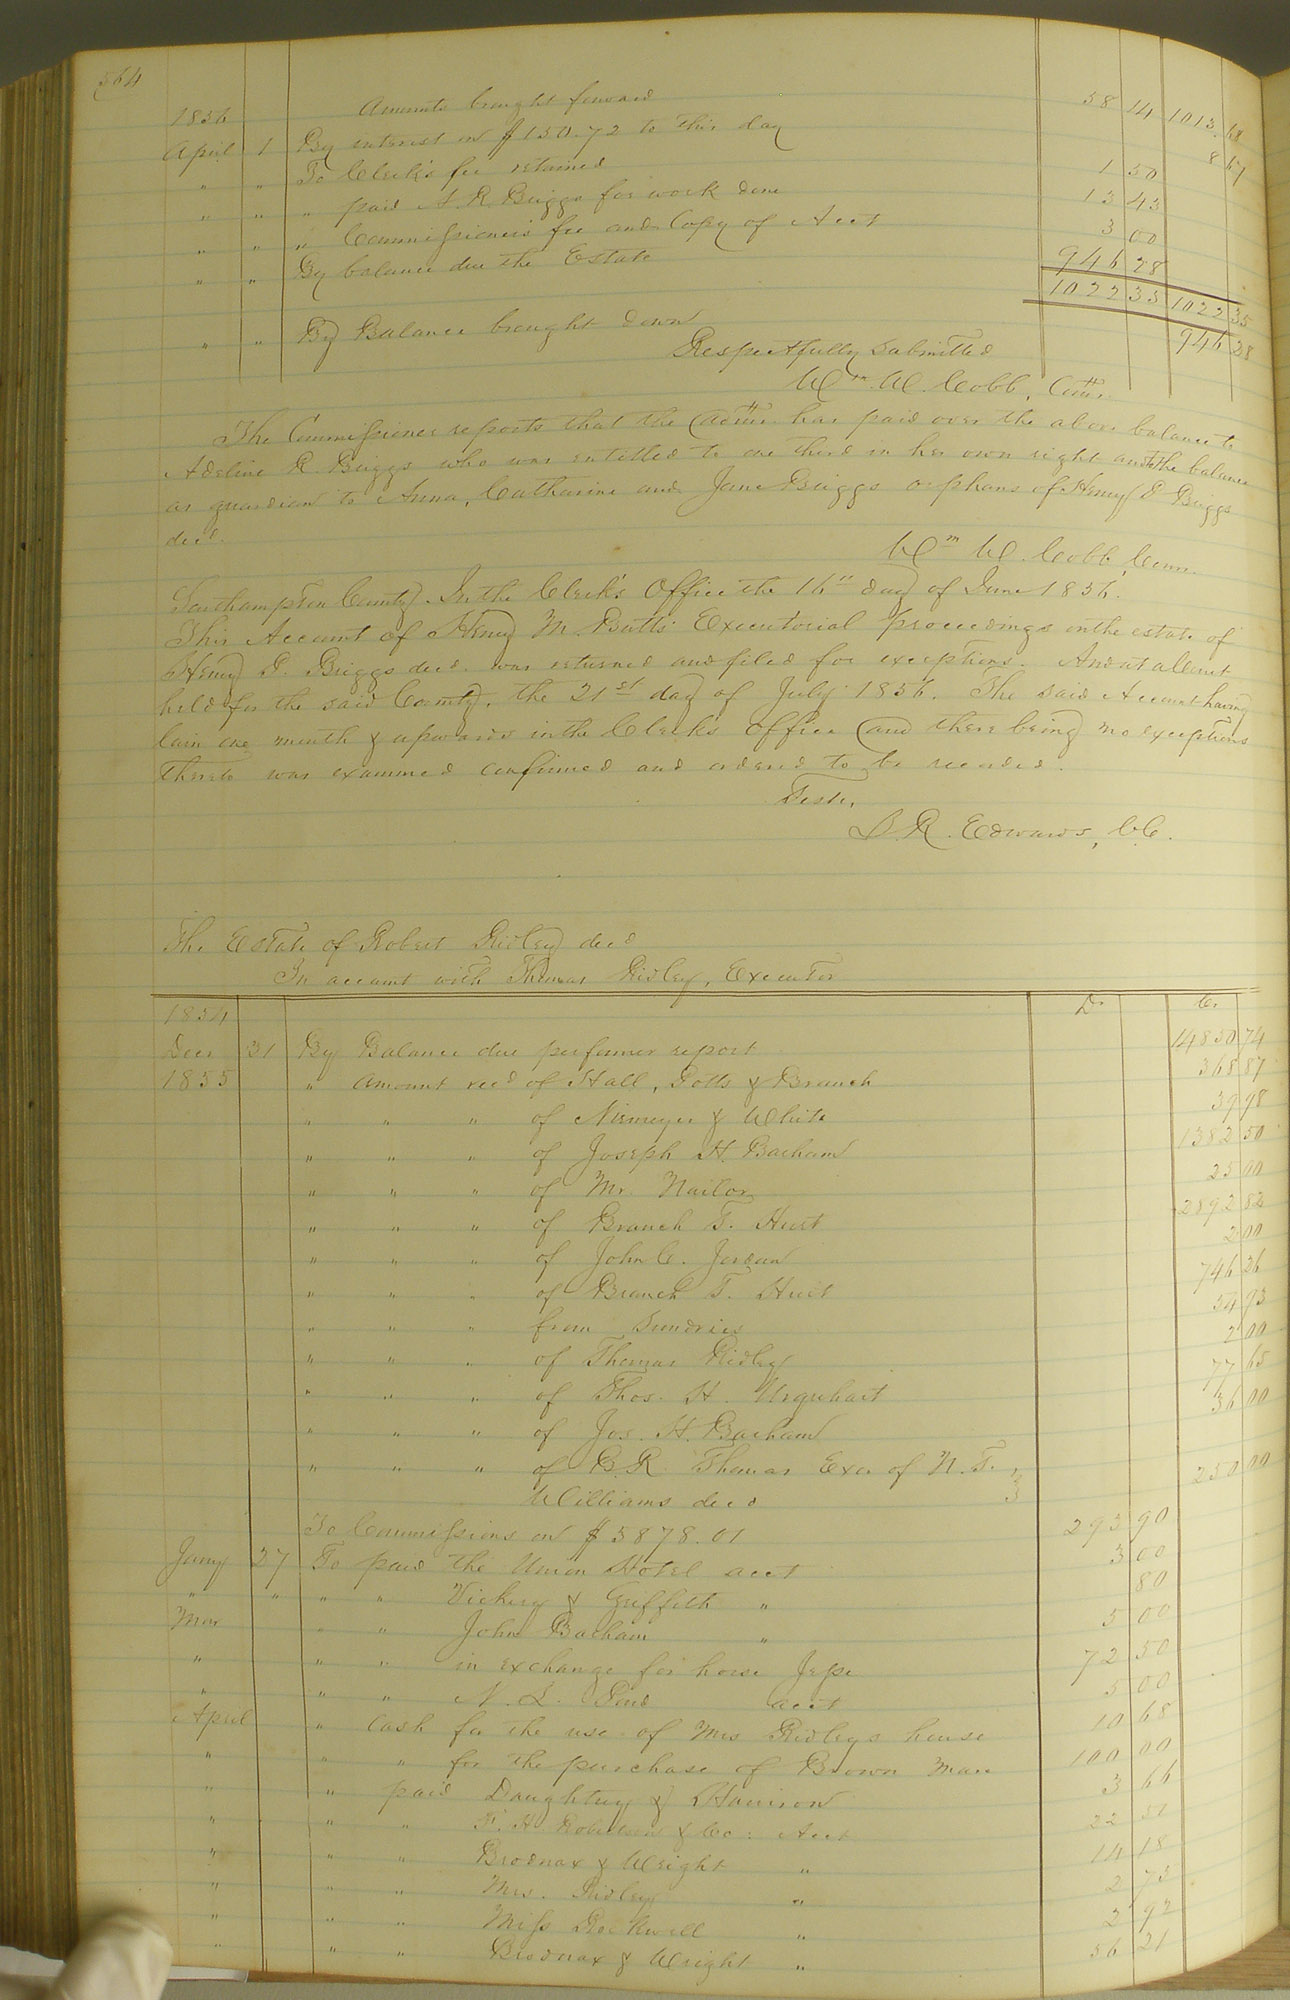 564
1856 Amounts brought forward 58 14 1013 68
April 1 By interest on $150.72 to this day 8 67
" " To Clerk's fee retained 1 50
" " " paid A. R. Briggs for work done 13 43
" " " Commissioner's fee and Copy of Acct 3 00
" " By balance due the Estate 946 28
1022 35 1022 35
" " By Balance brought down 946 28
Respectfully Submitted
Wm. W. Cobb, Comr.
The Commissioner reports that the Admr. has paid over the above balance to
Adeline R. Briggs who was entitled to one third in her own right and the balance
as guardian to Anna, Catharine and Jane Briggs orphans of Henry D Briggs
decd.
Wm W. Cobb, Comr.
Southampton County. In the Clerk's Office the 16th day of June 1856.
This Account of Henry M. Butts' Executorial proceedings on the estate of
Henry D. Briggs decd. was returned and filed for exceptions. And at a Court
held for the said County, the 21st day of July 1856. The said Account having
lain one month & upwards in the Clerk's Office and there being no exceptions
thereto was examined confirmed and ordered to be recorded.
Teste,
L. R. Edwards, C.C.
The Estate of Robert Ridley decd
In account with Thomas Ridley, Executor
1854 Dr Cr
Decr 31 By Balance due per former report 14830 74
1855 " Amount recd of Hall, Potts & Branch 368 87
" " " of Niemeyer & White 39 98
" " " of Joseph H. Barham 1382 50
" " " of Mr. Nailor 25 00
" " " of Branch T. Hurt 2892 82
" " " of John C. Jordan 2 00
" " " of Branch T. Hurt 746 26
" " " from Sundries 54 93
" " " of Thomas Ridley 2 00
" " " of Thos. H. Urquhart 77 65
" " " of Jos. H. Barham 36 00
" " " of B. R. Thomas Exr. of N. T.
Williams decd 250 00
To Commissions on $5878.01 293 90
Jany 27 To paid the Union Hotel acct 3 00
" " " " Vickery & Griffith " 80
Mar " " John Barham " 5 00
" " " in exchange for horse Jesse 72 50
" " " N. L. acct 5 00
April " Cash for the use of Mrs Ridleys house 10 68
" " " for the purchase of Brown Mare 100 00
" " paid Daughtry & Harrison 3 66
" " " & Co: Acct 22 51
" " " Brodnax & Wright " 14 18
" " " Mrs. Ridley " 2 73
" " " Miss Rockwell " 2 92
" " " Brodnax & Wright " 56 21